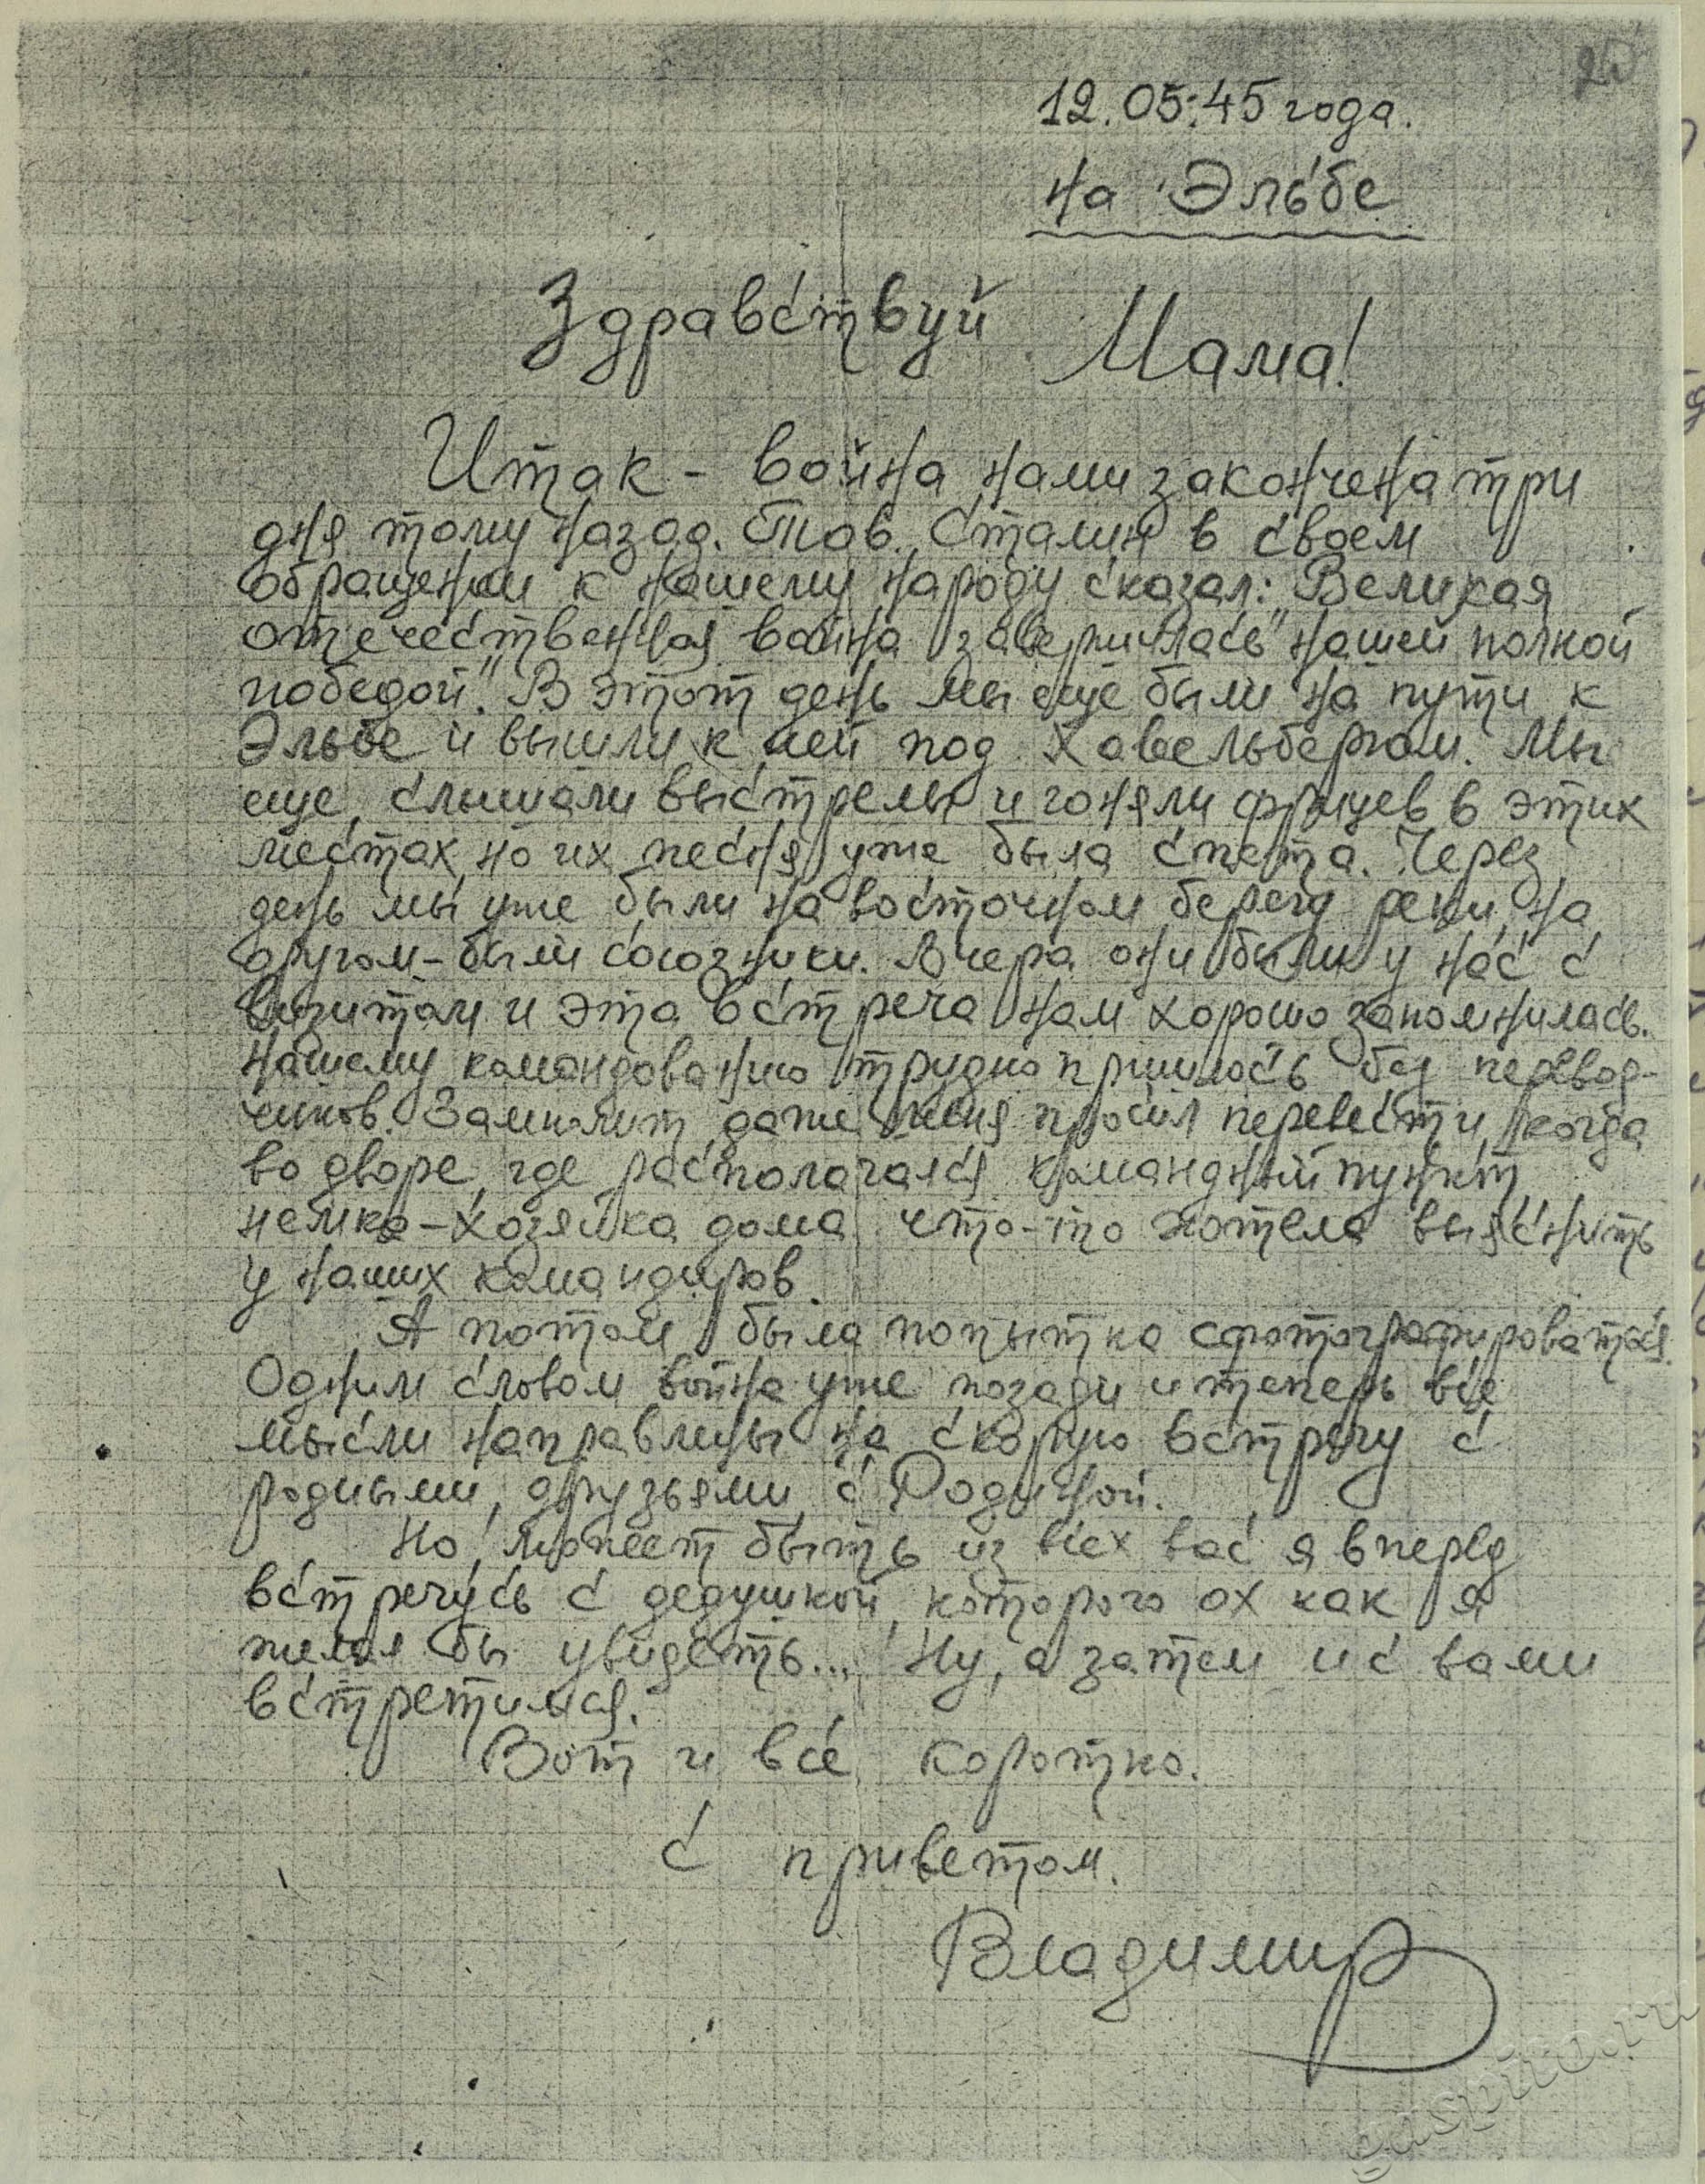 12.05.45 года.
на Эльбе
Здравствуй Мама!
Итак - война нами закончена три
дня тому назад. Тов. Сталин в своем
обращении к нашему народу сказал: "Великая
отечественная война завершилась нашей полной
победой". В этот день мы еще были на пути к
Эльбе и вышли к ней под Хавельбергом. Мы
еще слышали выстрелы и гоняли фрицев в этих
местах, но их песня уже была спета. Через
день мы уже были на восточном берегу реки, на
другом - были союзники. Вчера они были у нас с
визитом и эта встреча нам хорошо запомнилась.
Нашему командованию трудно пришлось без перевод-
чиков. Замполит даже меня просил перевести, когда
во дворе, где располагался командный пункт
немка - хозяйка дома что-то хотела выяснить
у наших командиров.
А потом была попытка сфотографироваться.
Одним словом война уже позади и теперь все
мысли направлены на скорую встречу с
родными, друзьями, с Родиной.
Но, может быть из всех вас я вперед
встречусь с дедушкой, которого ох как я
желал бы увидеть... Ну, а затем и с вами
встретимся.
Вот и все коротко.
С приветом.
Владимир
gaspito.ru